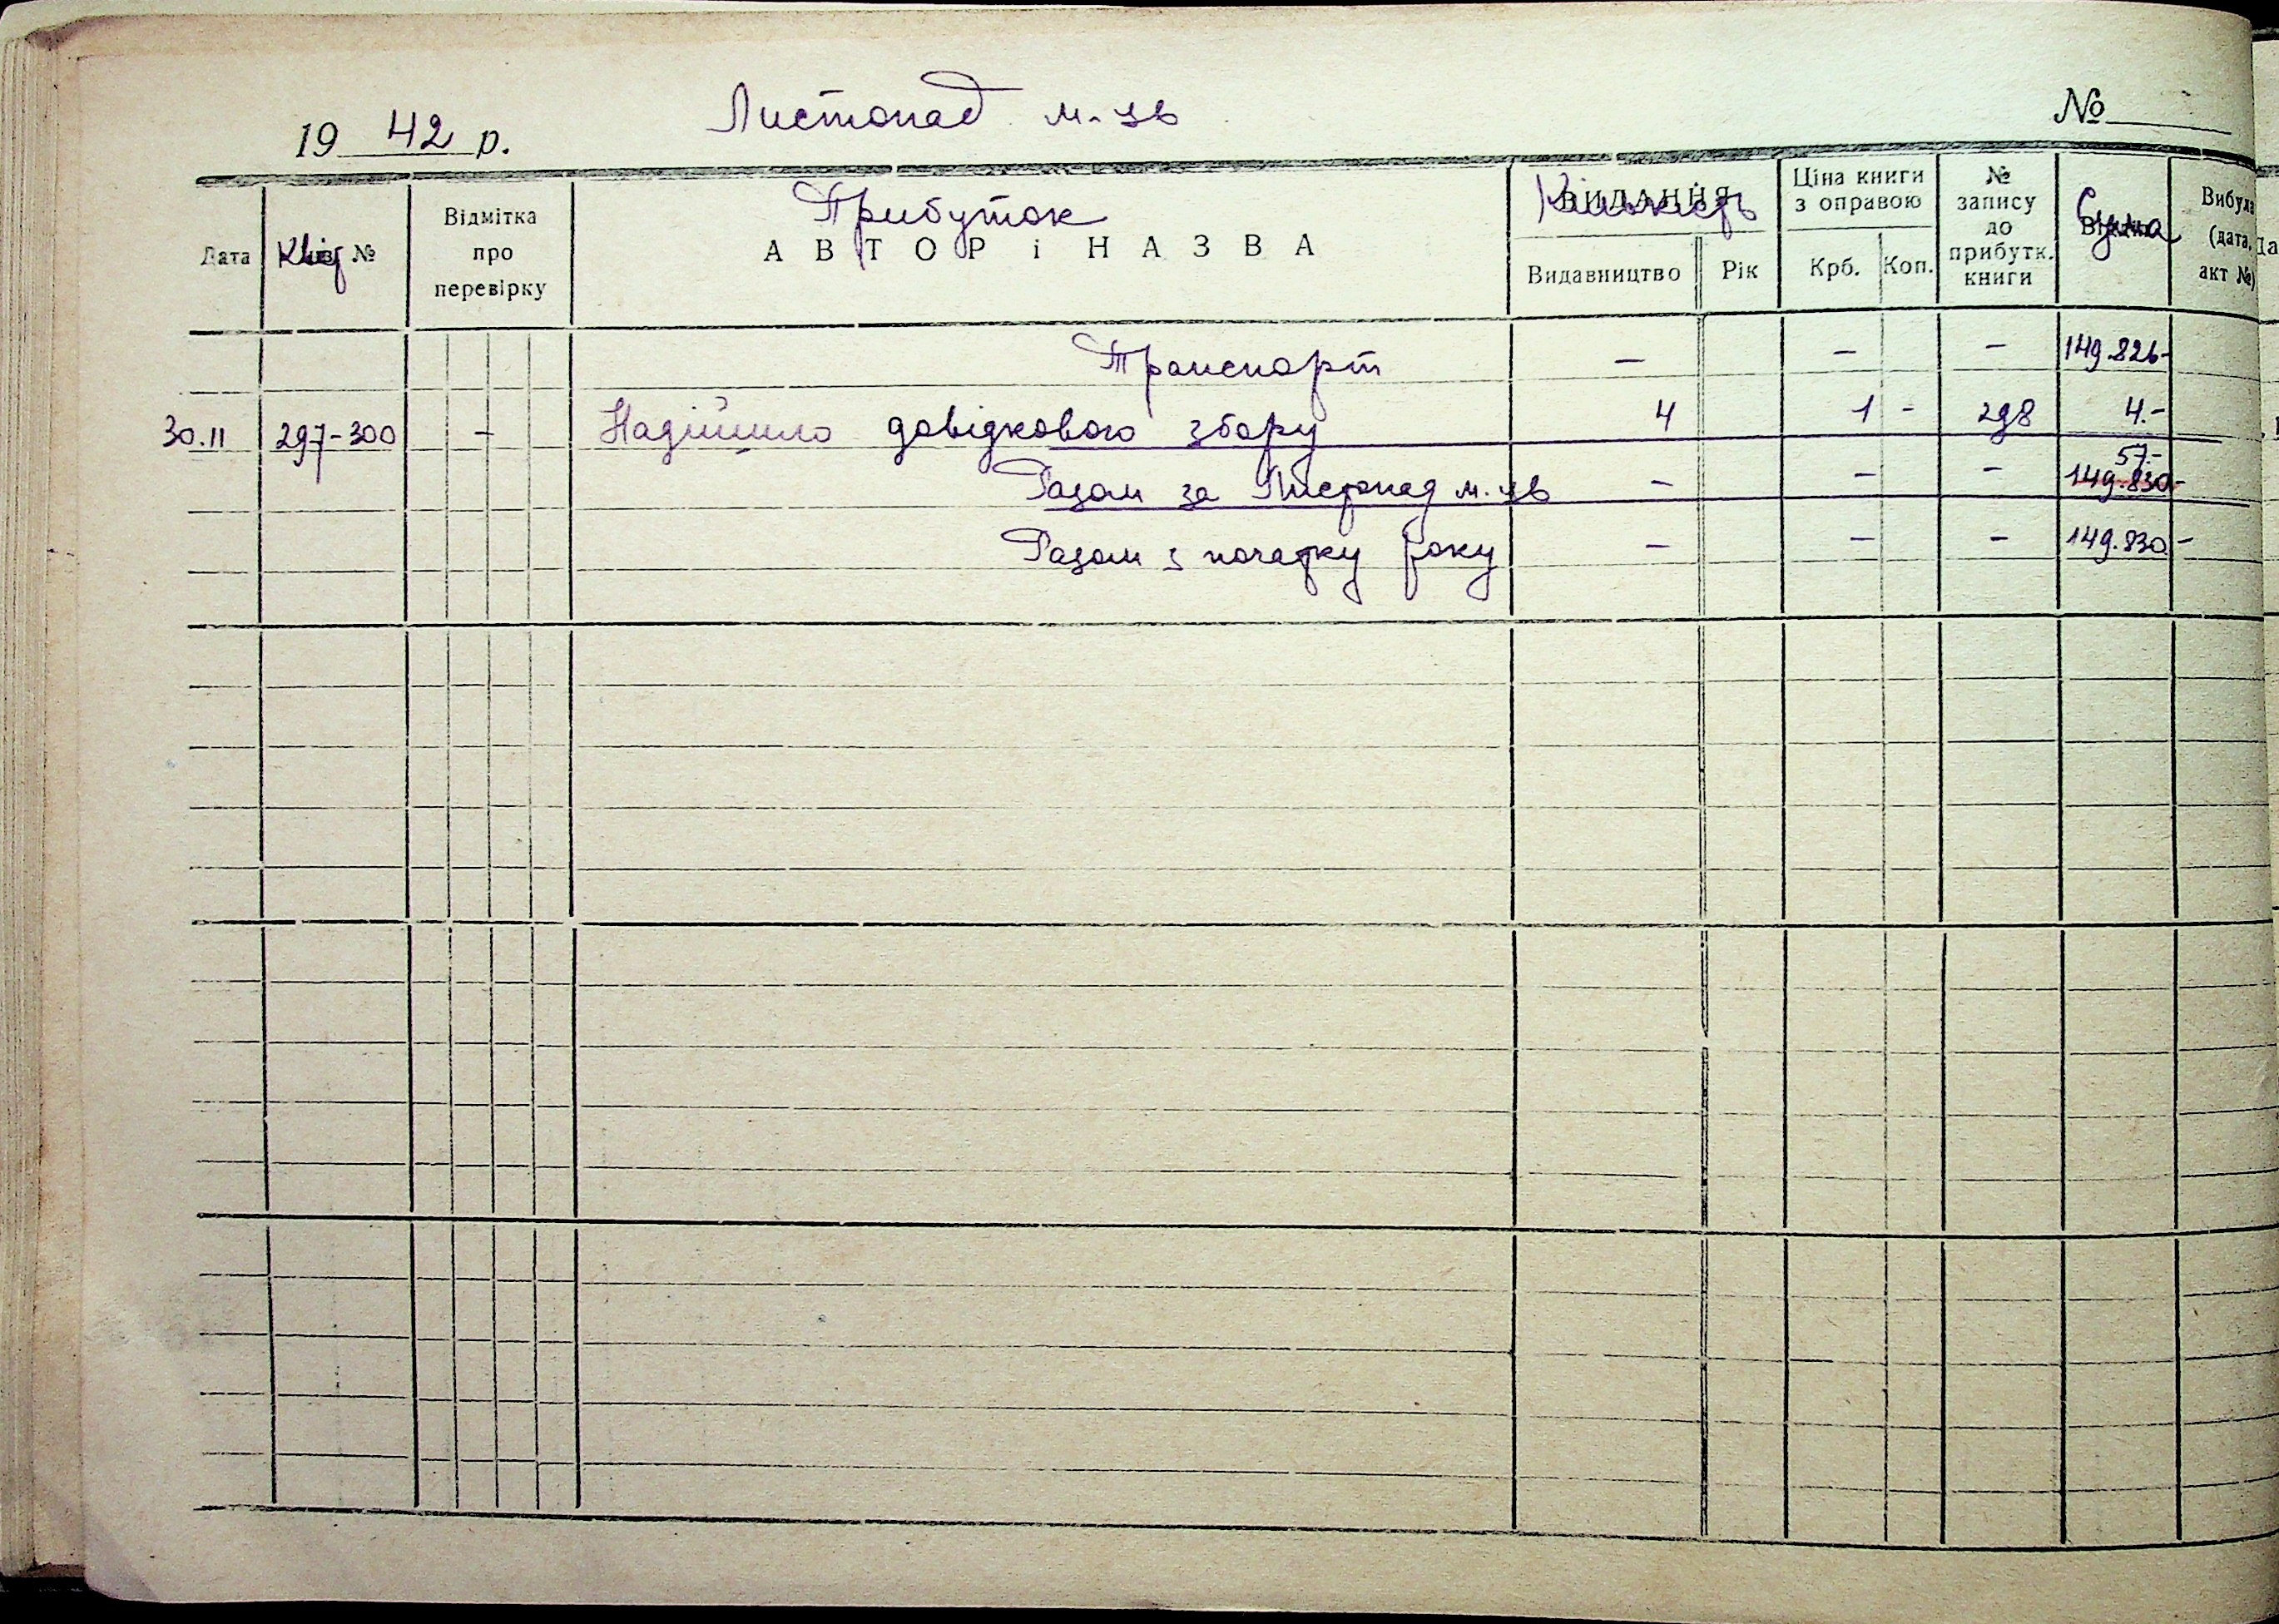 19 42 р. Листопад м-ць №
Дата Квіт № Відмітка про перевірку Прибуток АВТОР і НАЗВА Кількість ВИДАННЯ Видавництво Рік Ціна книги з оправою Крб. Коп. № запису до прибутк. книги Сума Вибула (дата, акт №)
Транспорт — — — 149.826-
30.11 297-300 — Надійшло довідкового збору 4 1 - 298 4.-
57.-
Разом за Листопад м-ць — — — 149.830-
Разом з початку року — — — 149.830-